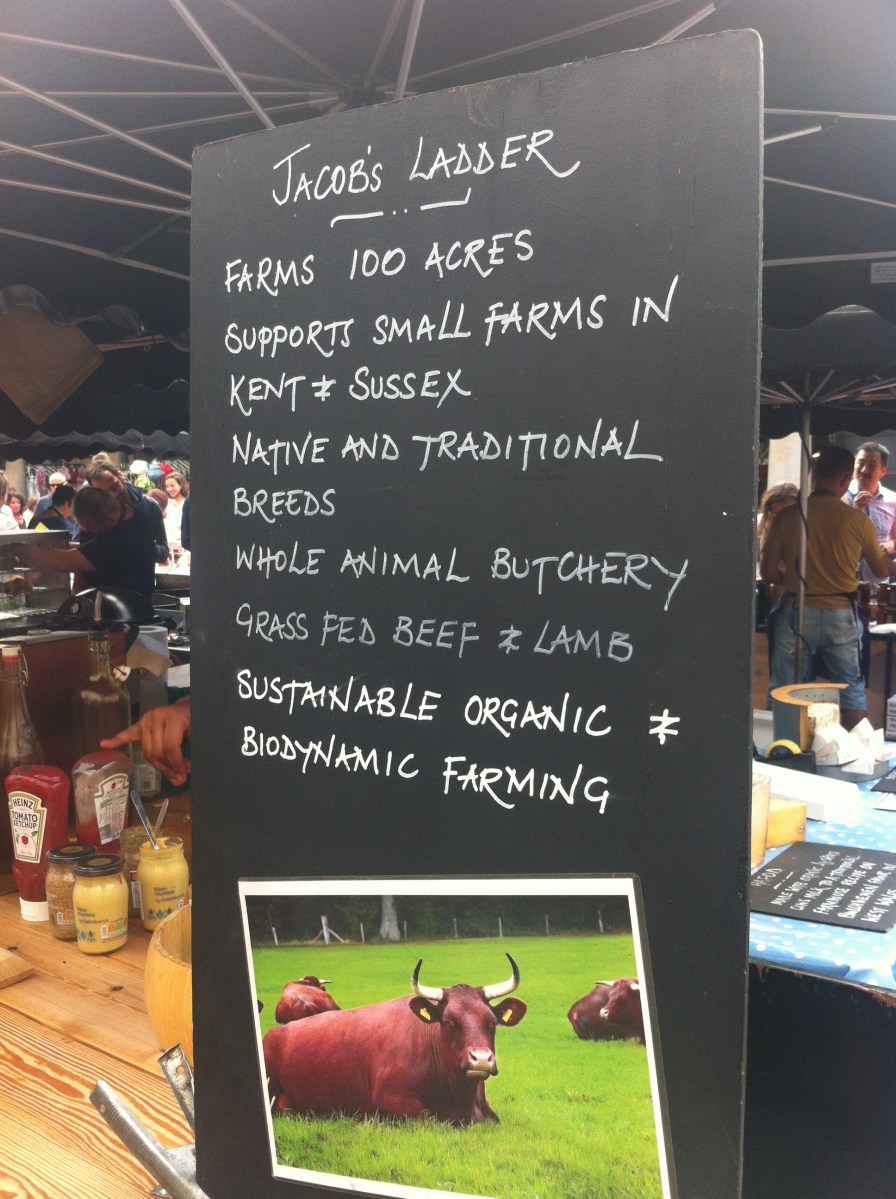 JACOB'S LADDER
FARMS 100 ACRES
SUPPORTS SMALL FARMS IN
KENT & SUSSEX
NATIVE AND TRADITIONAL
BREEDS
WHOLE ANIMAL BUTCHERY
GRASS FED BEEF & LAMB
SUSTAINABLE ORGANIC &
BIODYNAMIC FARMING
HEINZ
TOMATO
KETCHUP